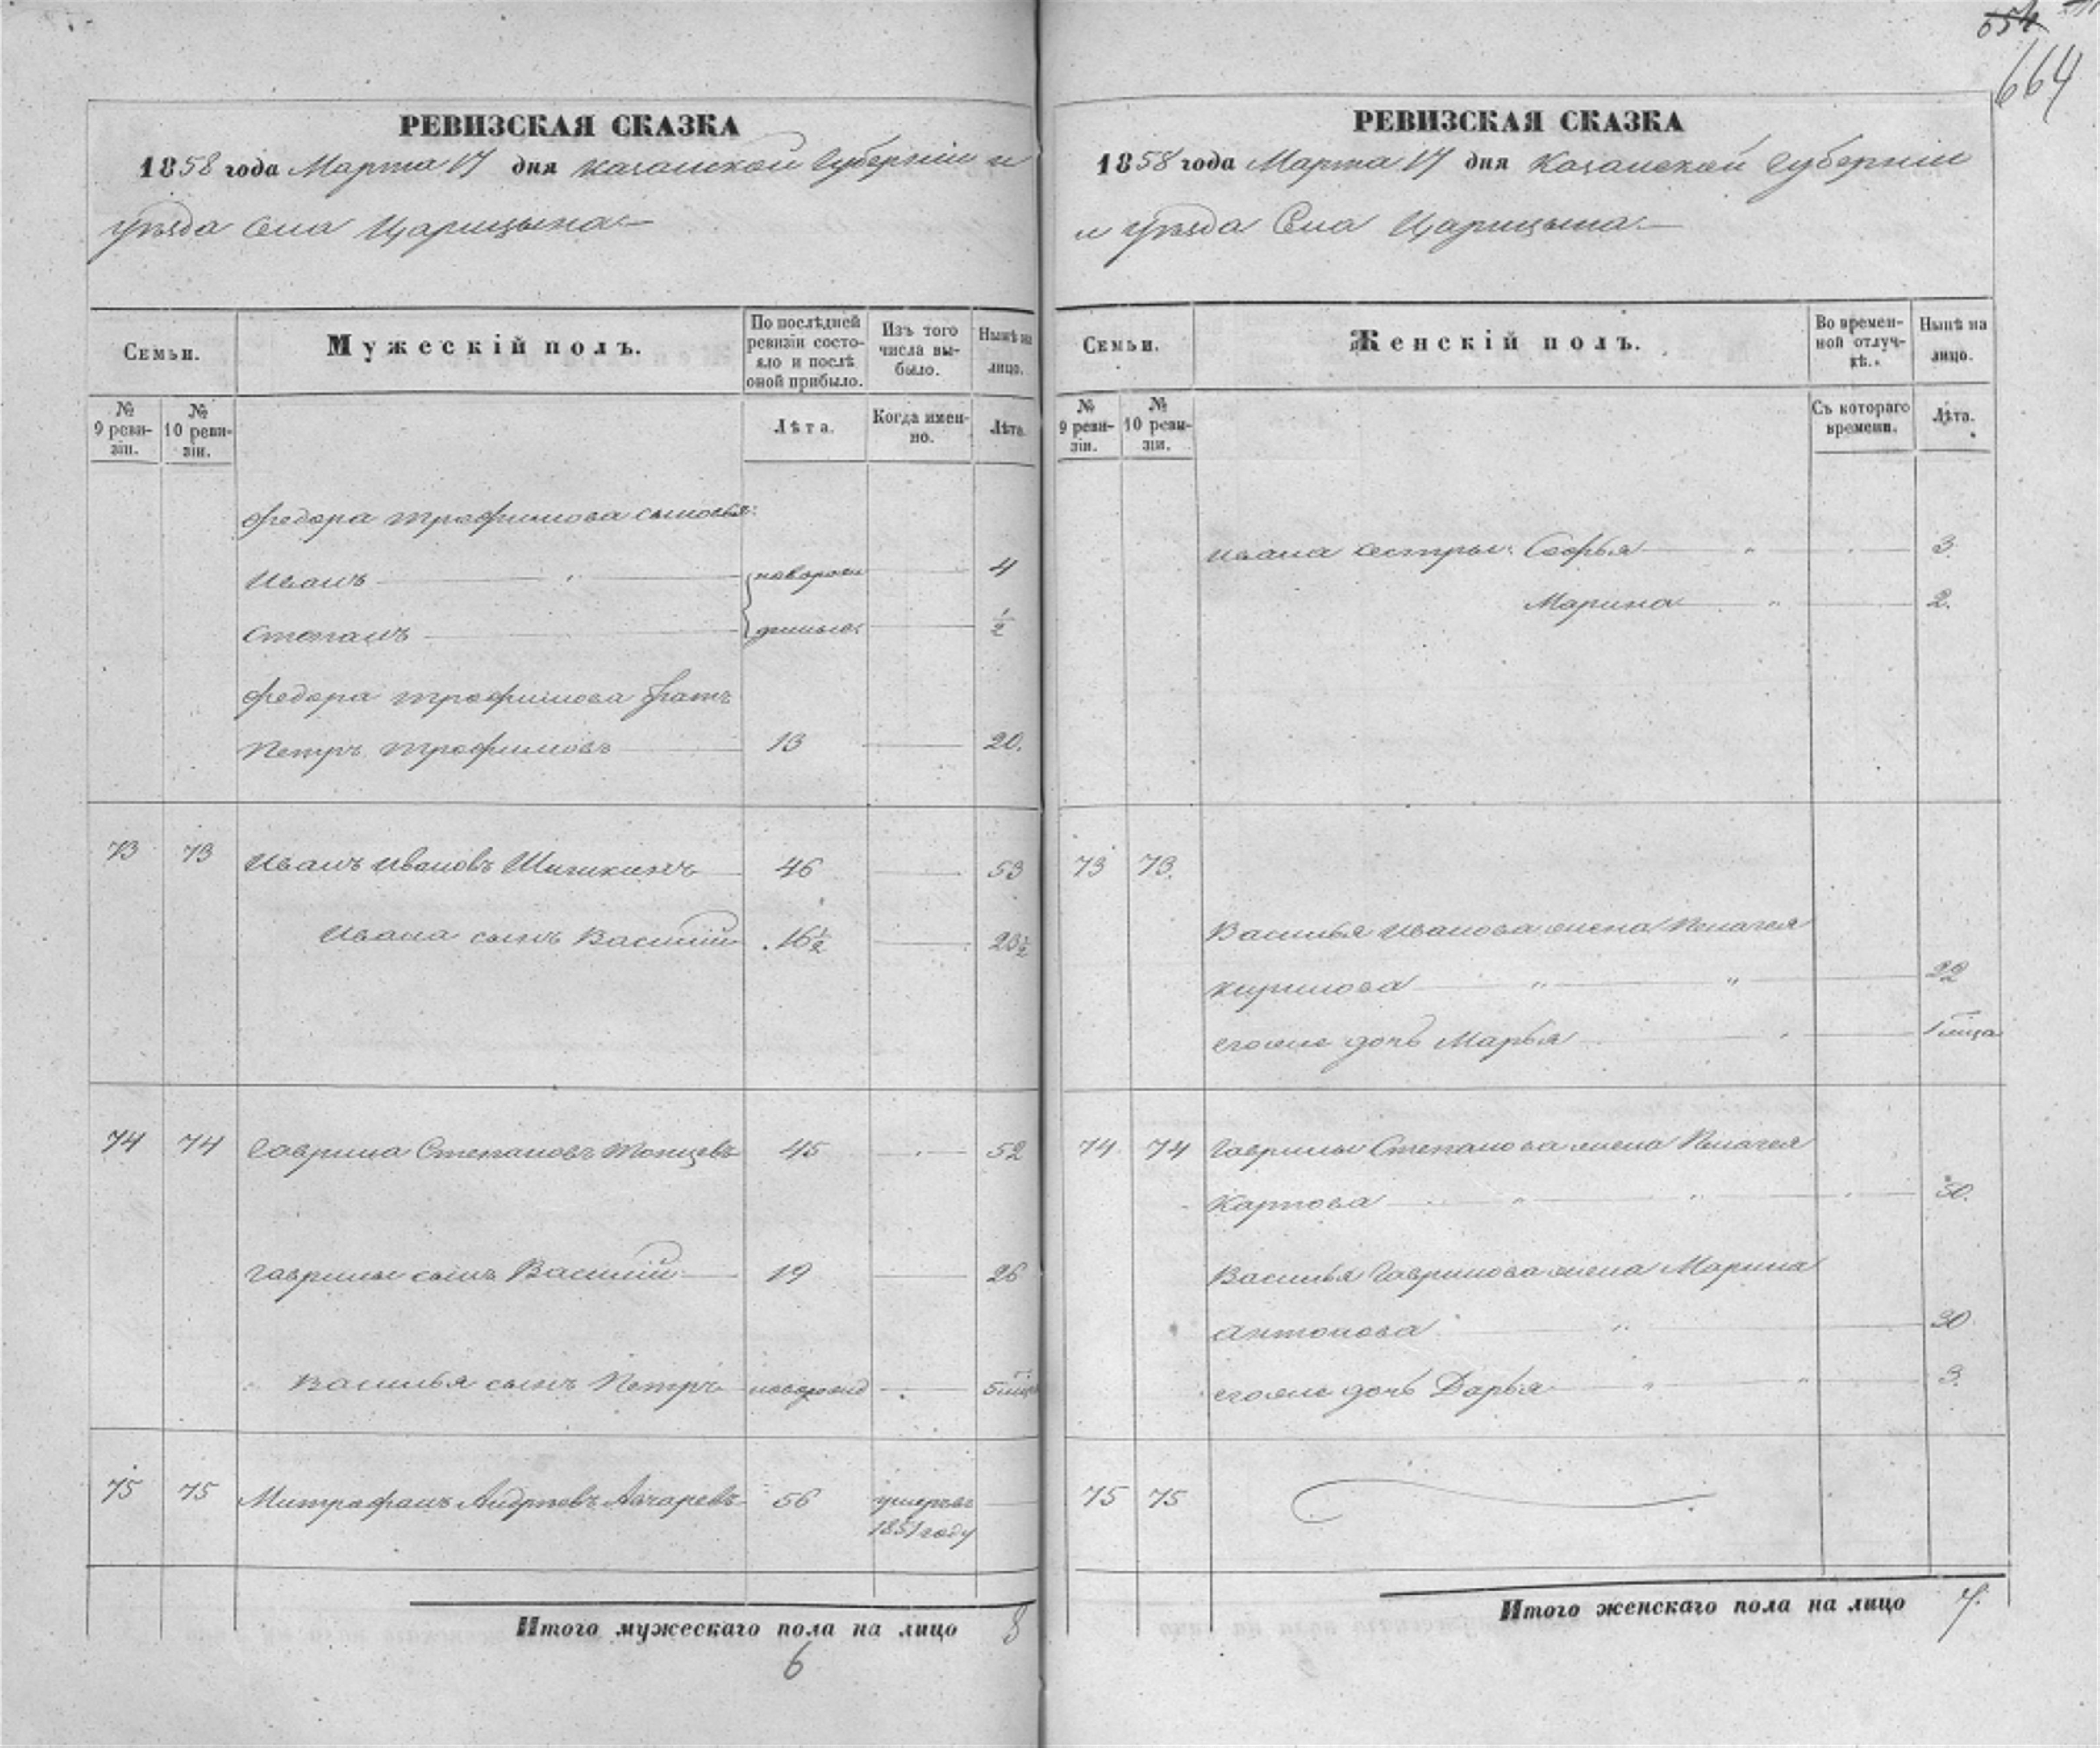 654
664
РЕВИЗСКАЯ СКАЗКА
1858 года Марта 17 дня Казанской Губерніи и
уѣзда Села Царицына
Семьи.
Мужескій полъ.
По послѣдней
ревизіи состо-
яло и послѣ
оной прибыло.
Изъ того
числа вы-
было.
Нынѣ на
лицо.
№
9 реви-
зіи.
№
10 реви-
зіи.
Лѣта.
Когда имен-
но.
Лѣта.
Федора Трофимова сыновья:
Иванъ новорож 4
Степанъ денные 1/2
Федора Трофимова братъ
Петръ Трофимовъ 13 20.
73 73 Иванъ Ивановъ Шишкинъ 46 53
Ивана сынъ Василій 16 1/2 23 1/2
74 74 Гаврила Степановъ 45 52
Гаврилы сынъ Василій 19 26
Василья сынъ Петръ новорожд 5 мѣся
75 75 Митрофанъ Андреевъ 56 умеръ въ
1851 году
Итого мужескаго пола на лицо 8
6
РЕВИЗСКАЯ СКАЗКА
1858 года Марта 17 дня Казанской Губерніи
и уѣзда Села Царицына
Семьи.
Женскій полъ.
Во времен-
ной отлуч-
кѣ.
Нынѣ на
лицо.
№
9 реви-
зіи.
№
10 реви-
зіи.
Съ котораго
времени.
Лѣта.
Ивана сестры: Софья 3.
Марина 2.
73 73.
Василья Иванова жена Пелагея
Кирилова 22
его же дочь Марья 1 мѣсяца
74 74 Гаврилы Степанова жена Пелагея
Карпова 50.
Василья Гаврилова жена Марина
Антонова 30
его же дочь Дарья 3.
75 75
Итого женскаго пола на лицо 7.